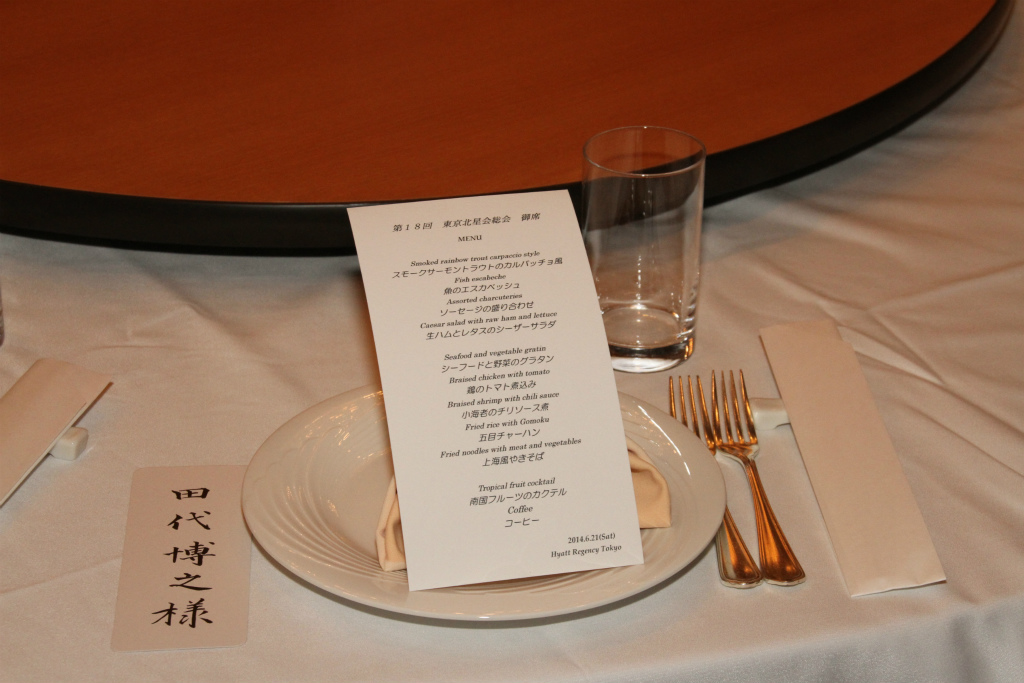 第１８回 東京北星会総会 御席
MENU
Smoked rainbow trout carpaccio style
スモークサーモントラウトのカルパッチョ風
Fish escabeche
魚のエスカベッシュ
Assorted charcuteries
ソーセージの盛り合わせ
Caesar salad with raw ham and lettuce
生ハムとレタスのシーザーサラダ
Seafood and vegetable gratin
シーフードと野菜のグラタン
Braised chicken with tomato
鶏のトマト煮込み
Braised shrimp with chili sauce
小海老のチリソース煮
Fried rice with Gomoku
五目チャーハン
Fried noodles with meat and vegetables
上海風やきそば
Tropical fruit cocktail
南国フルーツのカクテル
Coffee
コーヒー
2014.6.21(Sat)
Hyatt Regency Tokyo
田代博之様